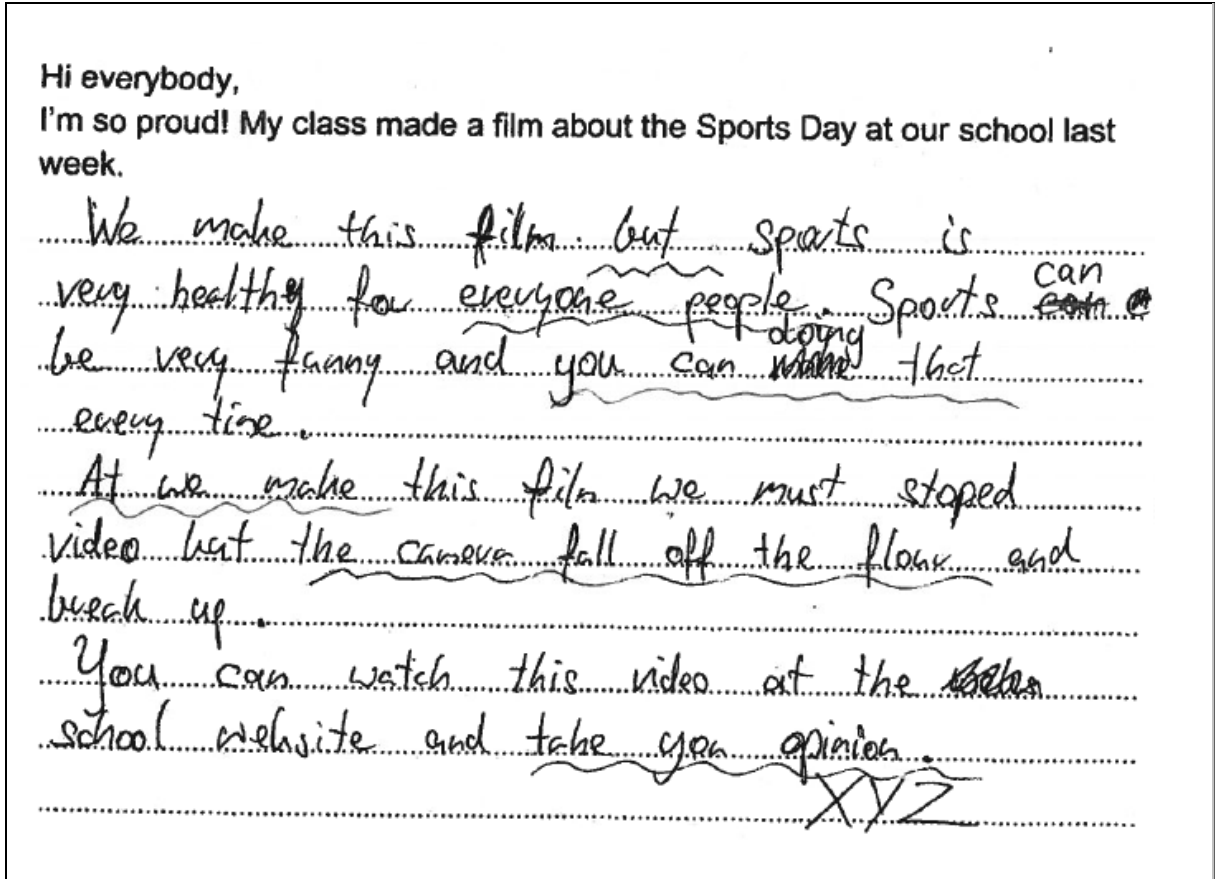 Hi everybody,
I'm so proud! My class made a film about the Sports Day at our school last
week.
We make this film but sports is
very healthy for everyone people. Sports can
be very funny and you can doing that
every time.
At we make this film we must stoped
video but the camera fall off the flour and
break up.
You can watch this video at the
school website and take you opinion.
XYZ